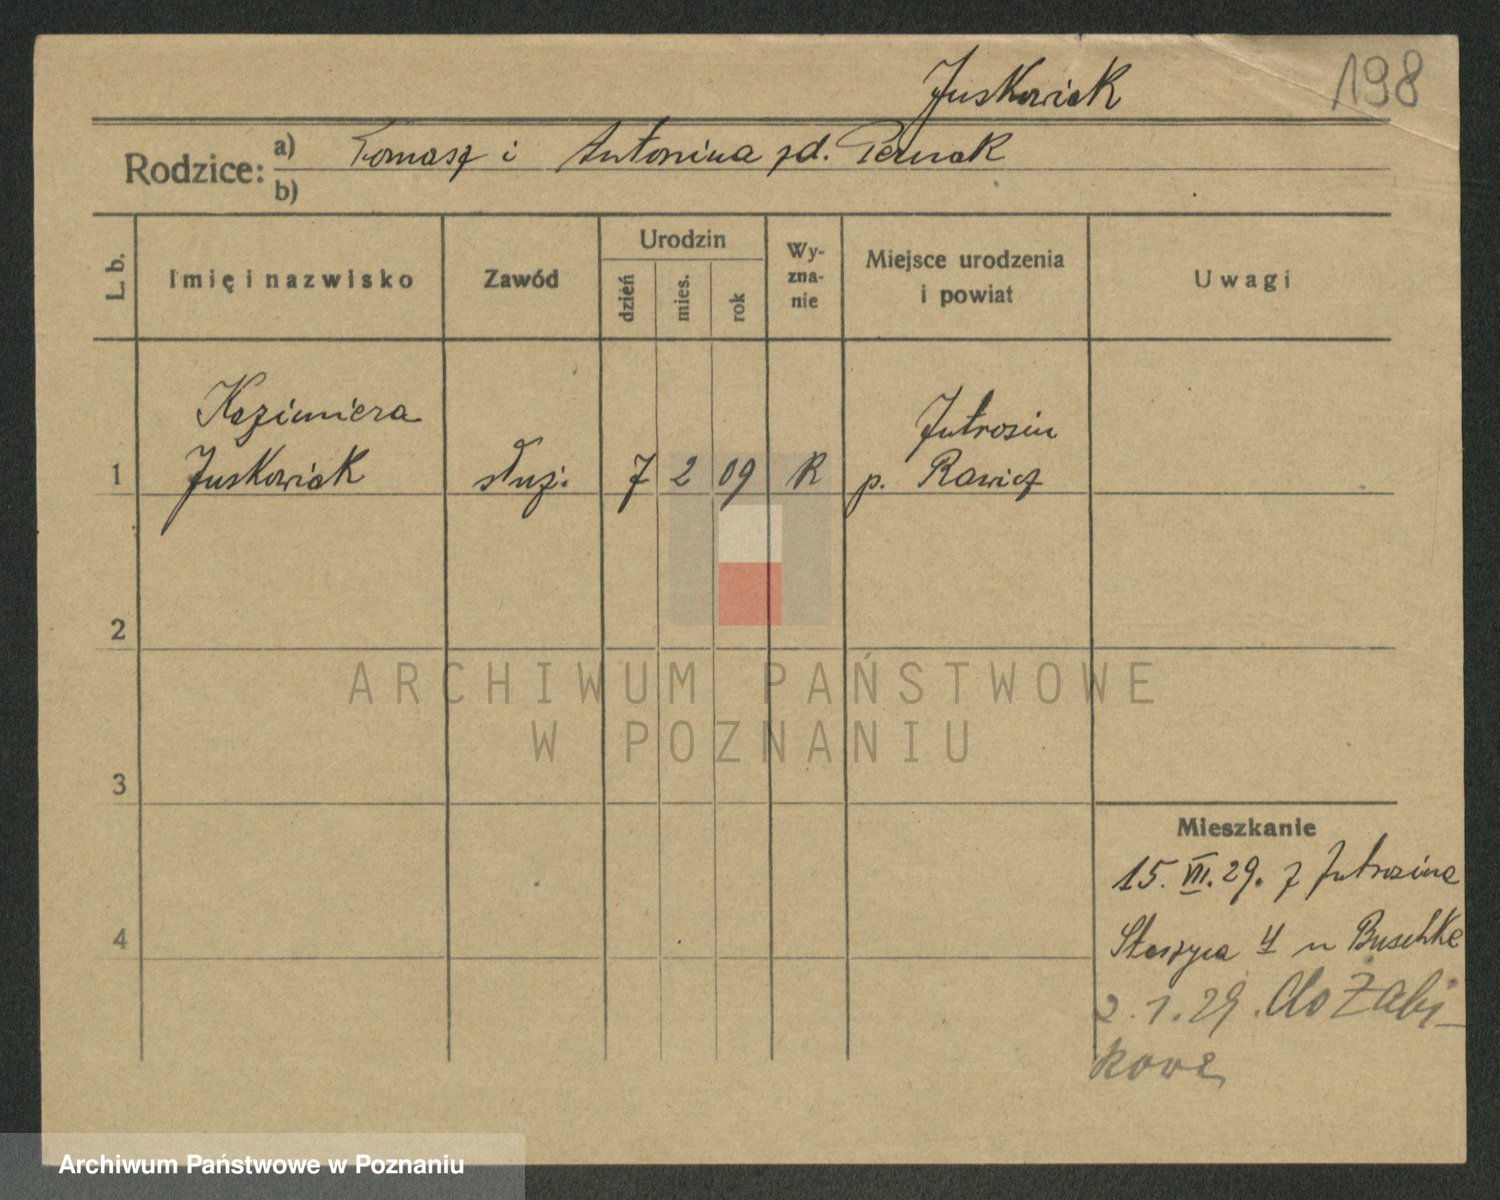 Juskowiak
198
Rodzice: a) Tomasz i Antonina zd. Pernak
b)
L. b. Imię i nazwisko Zawód Urodzin dzień mies. rok Wyznanie Miejsce urodzenia i powiat Uwagi
Kazimiera
Jutrosin
1 Juskowiak służ. 7 2 09 R p. Rawicz
2
ARCHIWUM PAŃSTWOWE
W POZNANIU
3
Mieszkanie
15. VII. 29. z Jutrosina
4
Staszyca 4 u Buschke
2.1.29. do Żabi-
kowa
Archiwum Państwowe w Poznaniu